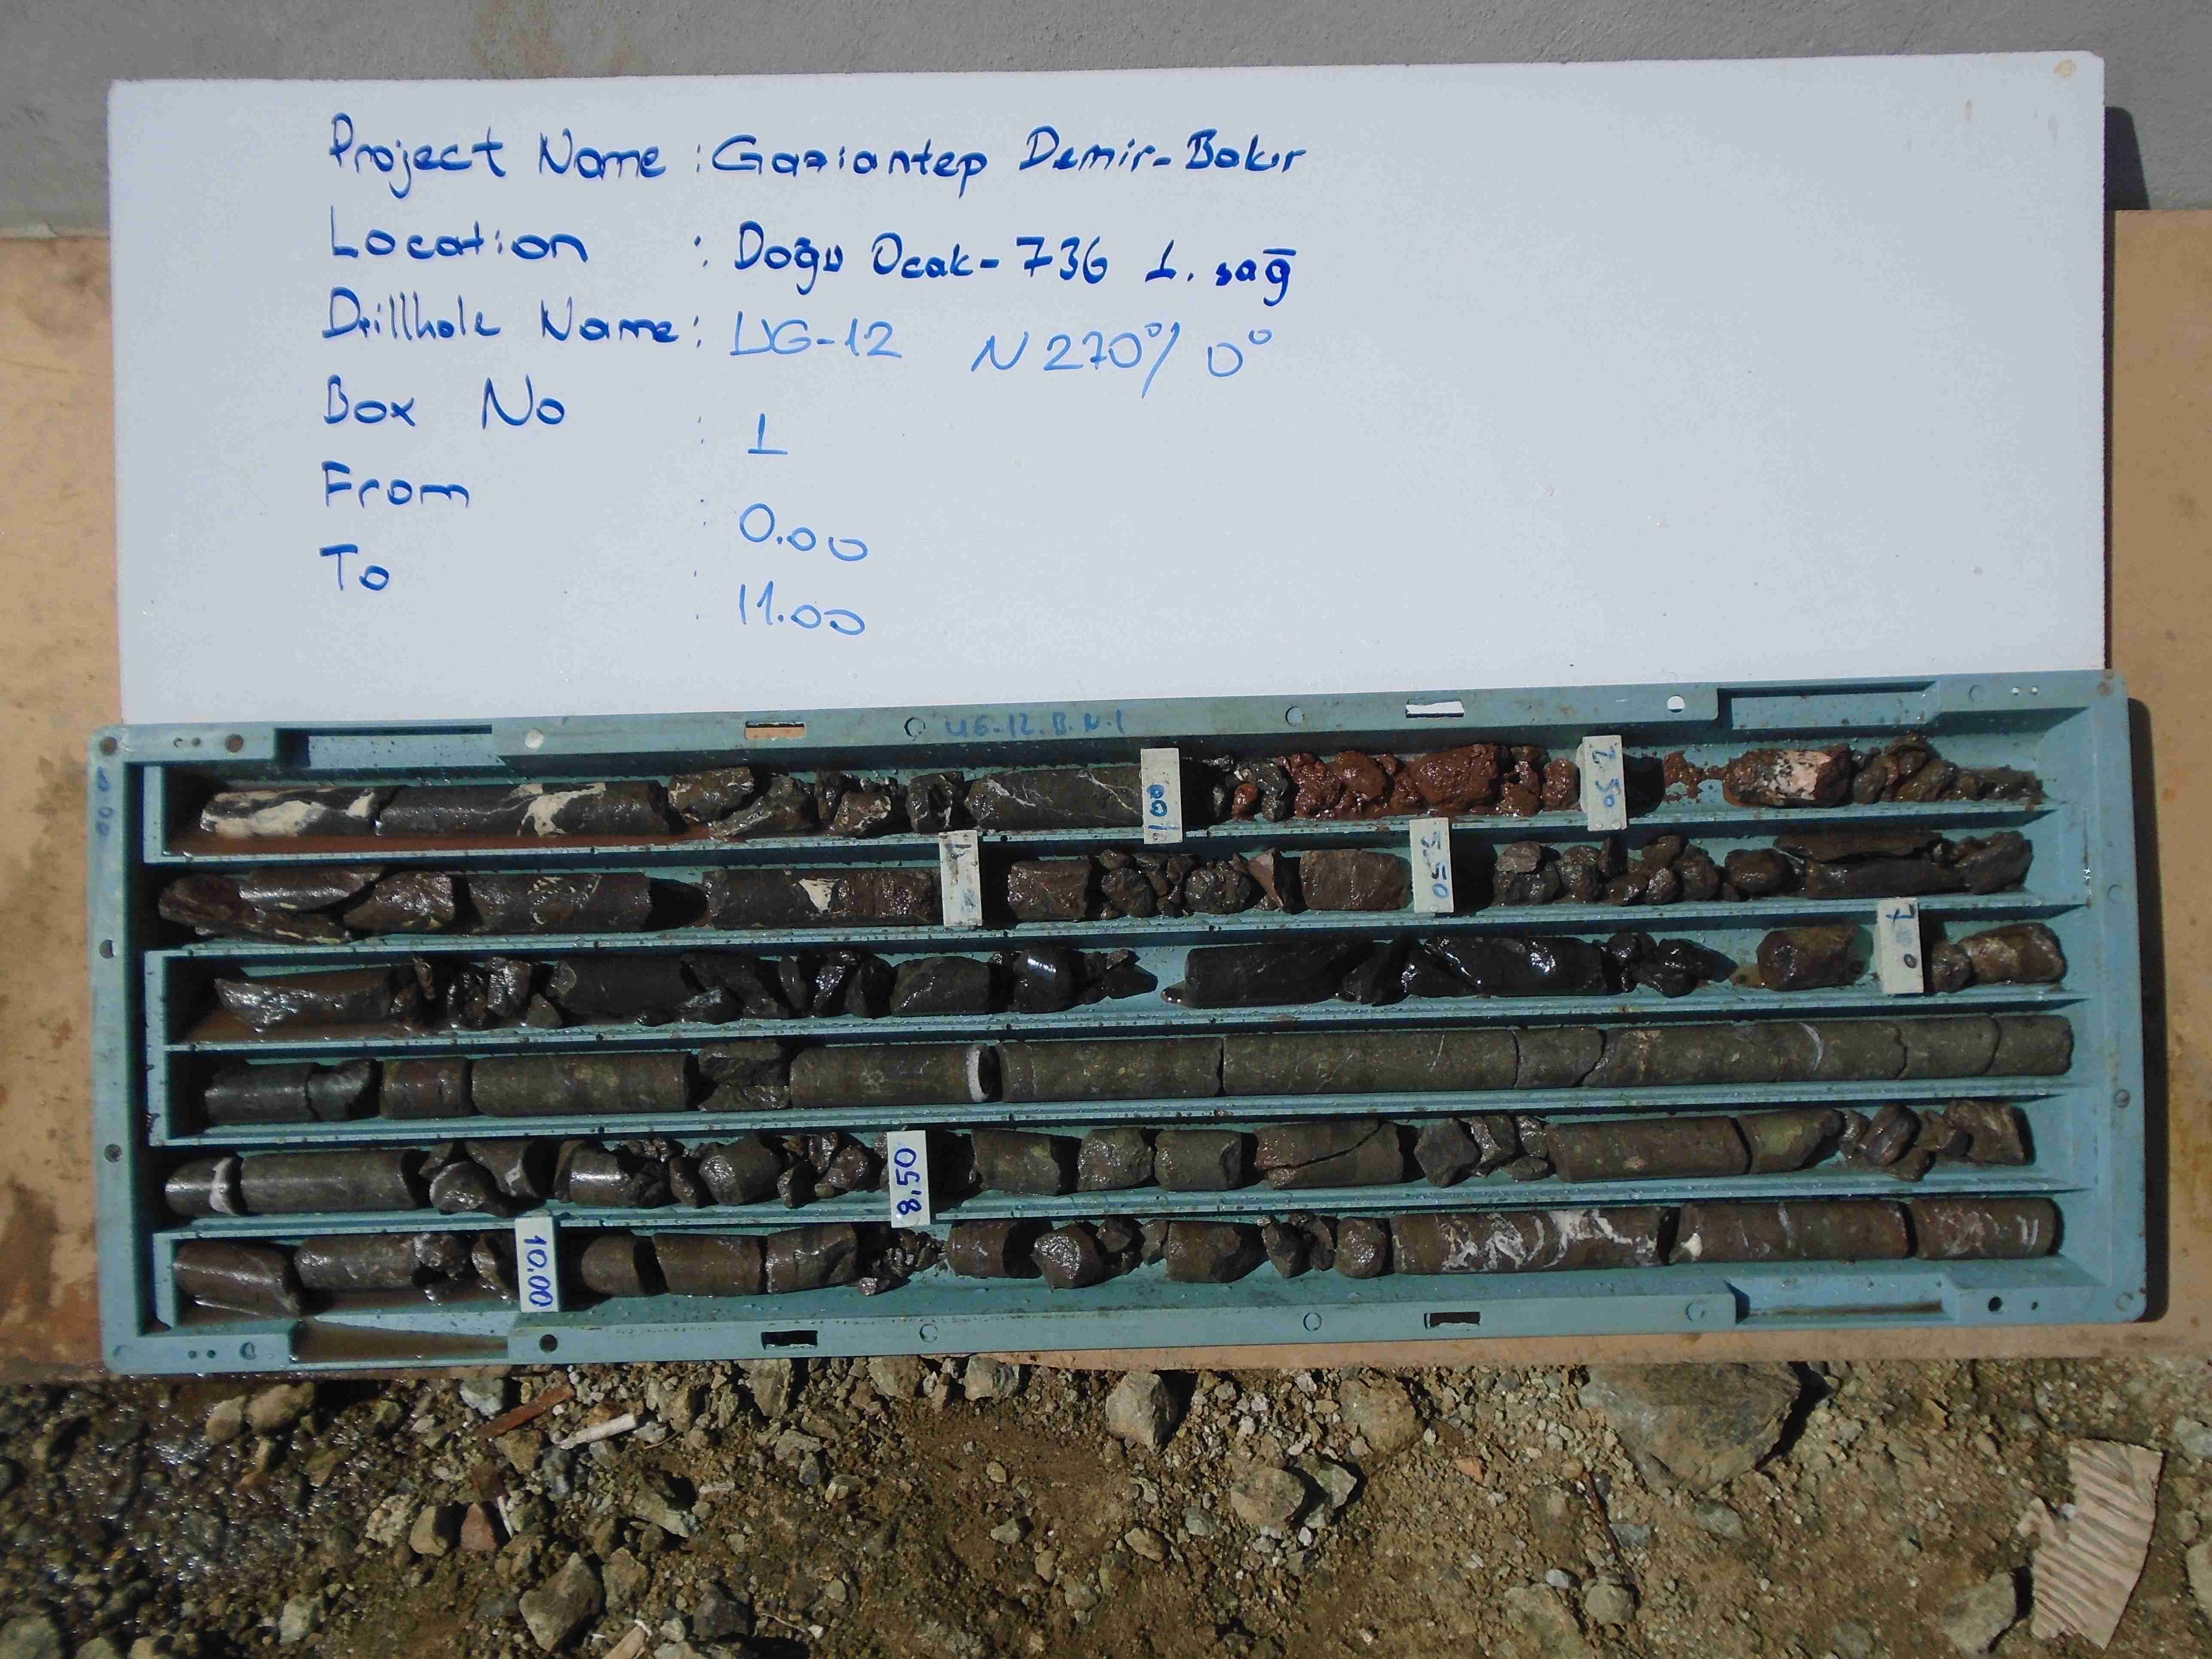 Project Name : Gaziantep Demir-Bakır
Location : Doğu Ocak-736 1. sağ
Drillhole Name : UG-12 N270°/0°
Box No : 1
From : 0.00
To : 11.00
UG-12.B.N-1
0.00
1.00
2.50
5.50
8.50
10.00